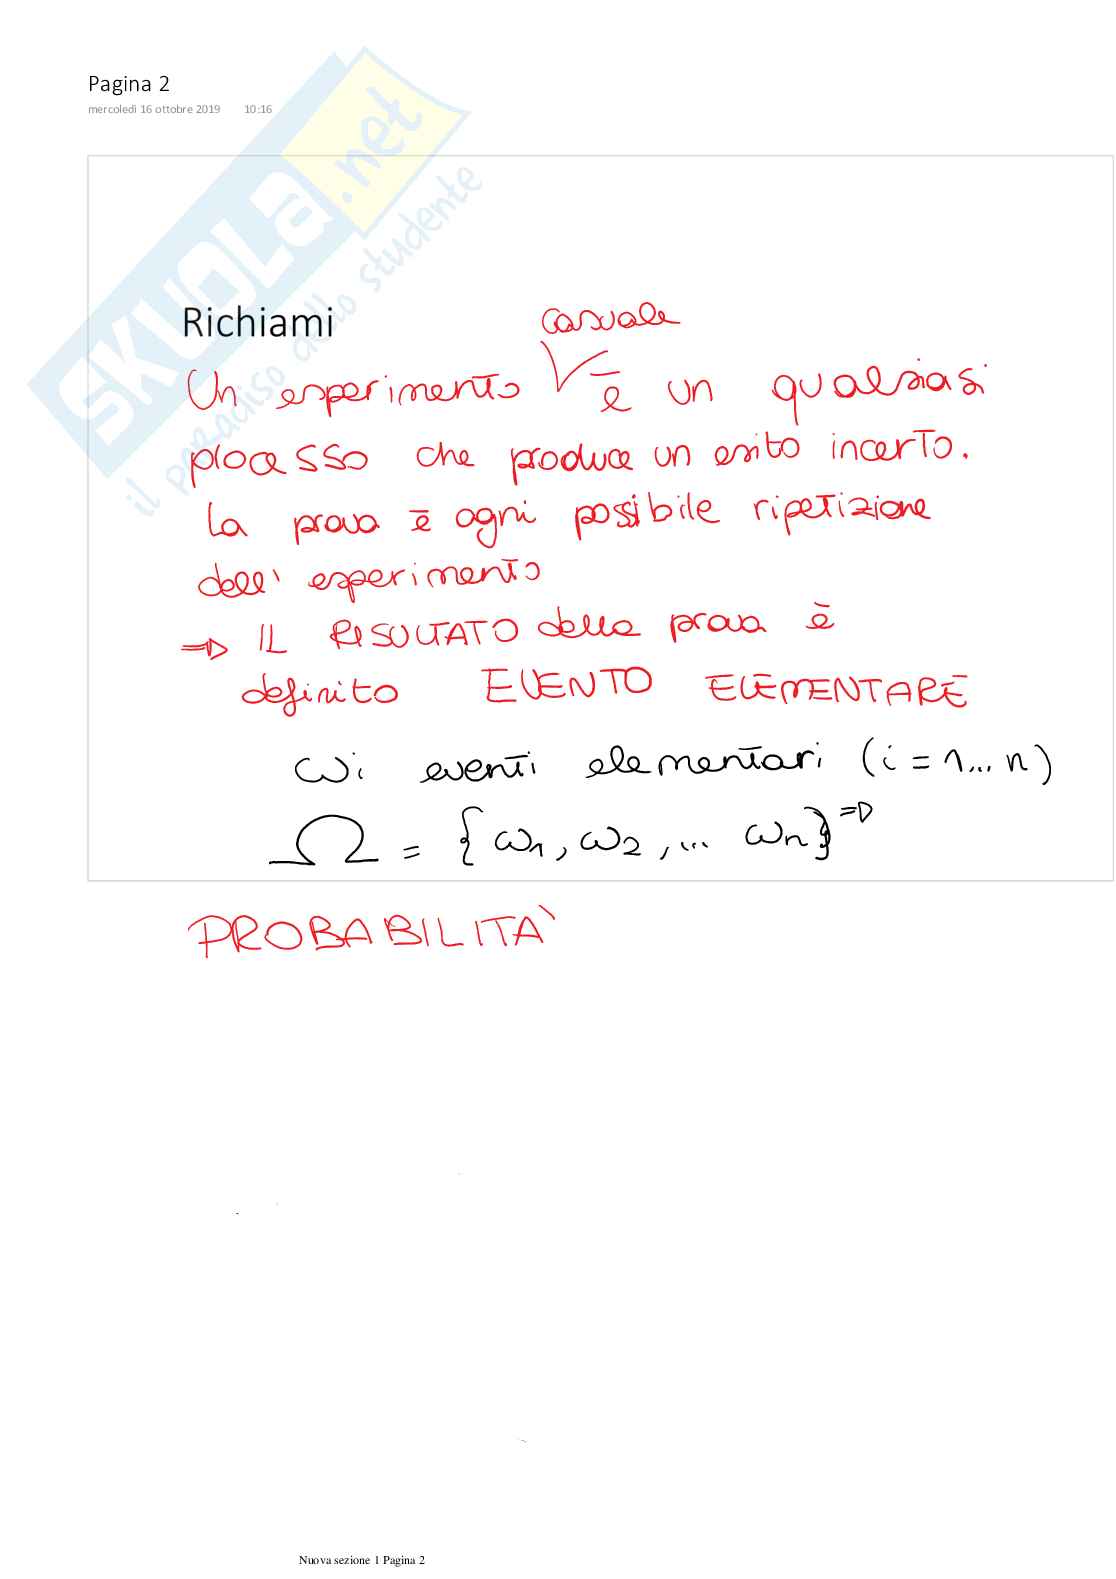 Pagina 2
mercoledì 16 ottobre 2019 10:16
SKUOLA.net
il paradiso dello studente
Richiami
casuale
Un esperimento è un qualsiasi
processo che produce un esito incerto.
La prova è ogni possibile ripetizione
dell' esperimento
⇒ IL RISULTATO della prova è
definito EVENTO ELEMENTARE
ωi eventi elementari (i = 1... n)
Ω = {ω1, ω2, ... ωn} ⇒
PROBABILITA'
Nuova sezione 1 Pagina 2